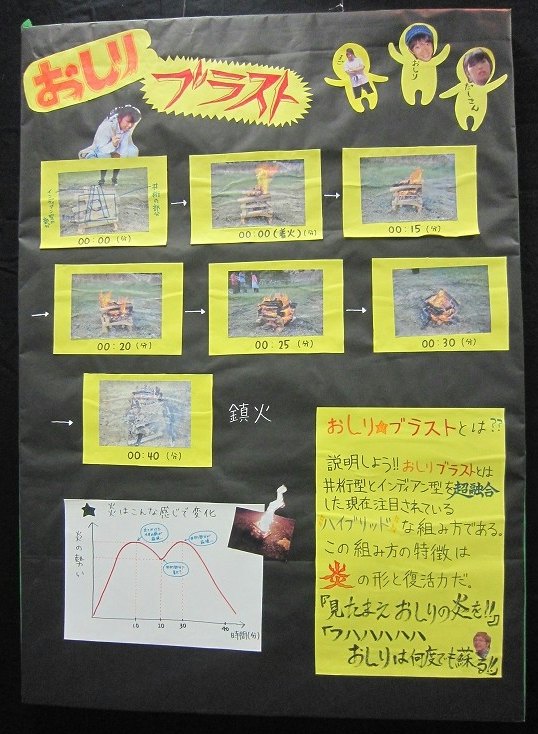 おしり
ブラスト
おしり
だしさん
井桁の部分
00:00 (分)
00:00(着火)(分)
00:15 (分)
00:20 (分)
00:25 (分)
00:30 (分)
00:40 (分)
鎮火
★ 炎はこんな感じで変化
炎の勢い
10
20
30
40
時間(分)
おしり★ブラストとは??
説明しよう!!おしりブラストとは
井桁型とインデアン型を超融合
した現在注目されている
"ハイブリッド"な組み方である。
この組み方の特徴は
炎の形と復活力だ。
『見たまえ おしりの炎を!!』
『フハハハハハ
おしりは何度でも蘇る!!』